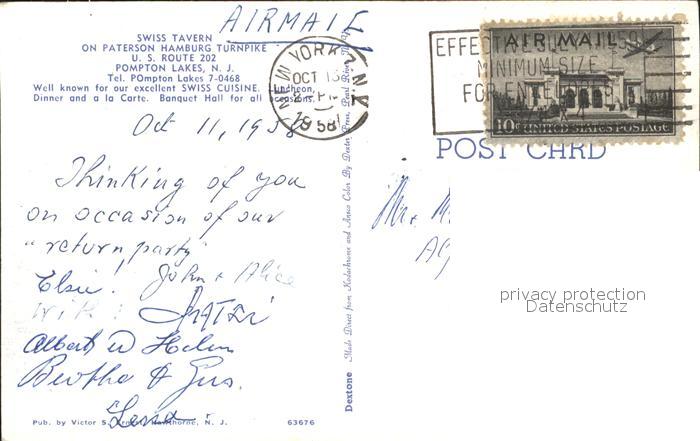 AIRMAIL
SWISS TAVERN
ON PATERSON HAMBURG TURNPIKE
U. S. ROUTE 202
POMPTON LAKES, N. J.
Tel. POmpton Lakes 7-0468
Well known for our excellent SWISS CUISINE. Luncheon,
Dinner and a la Carte. Banquet Hall for all occasions.
Oct 11, 1958
Thinking of you
on occasion of our
"return party"
Elsie! John + Alice
Albert W Helen
Bertha & Gus.
Lena
Pub. by Victor S. Hawthorne, N. J.
63676
Dextone
Made Direct from Kodachrome and Ansco Color By Dexter Press, Pearl River, N. Y.
NEW YORK N.Y.
OCT 13
1958
EFFECTIVE
MINIMUM SIZE
FOR
AIR MAIL
10¢ UNITED STATES POSTAGE
POST CARD
privacy protection
Datenschutz